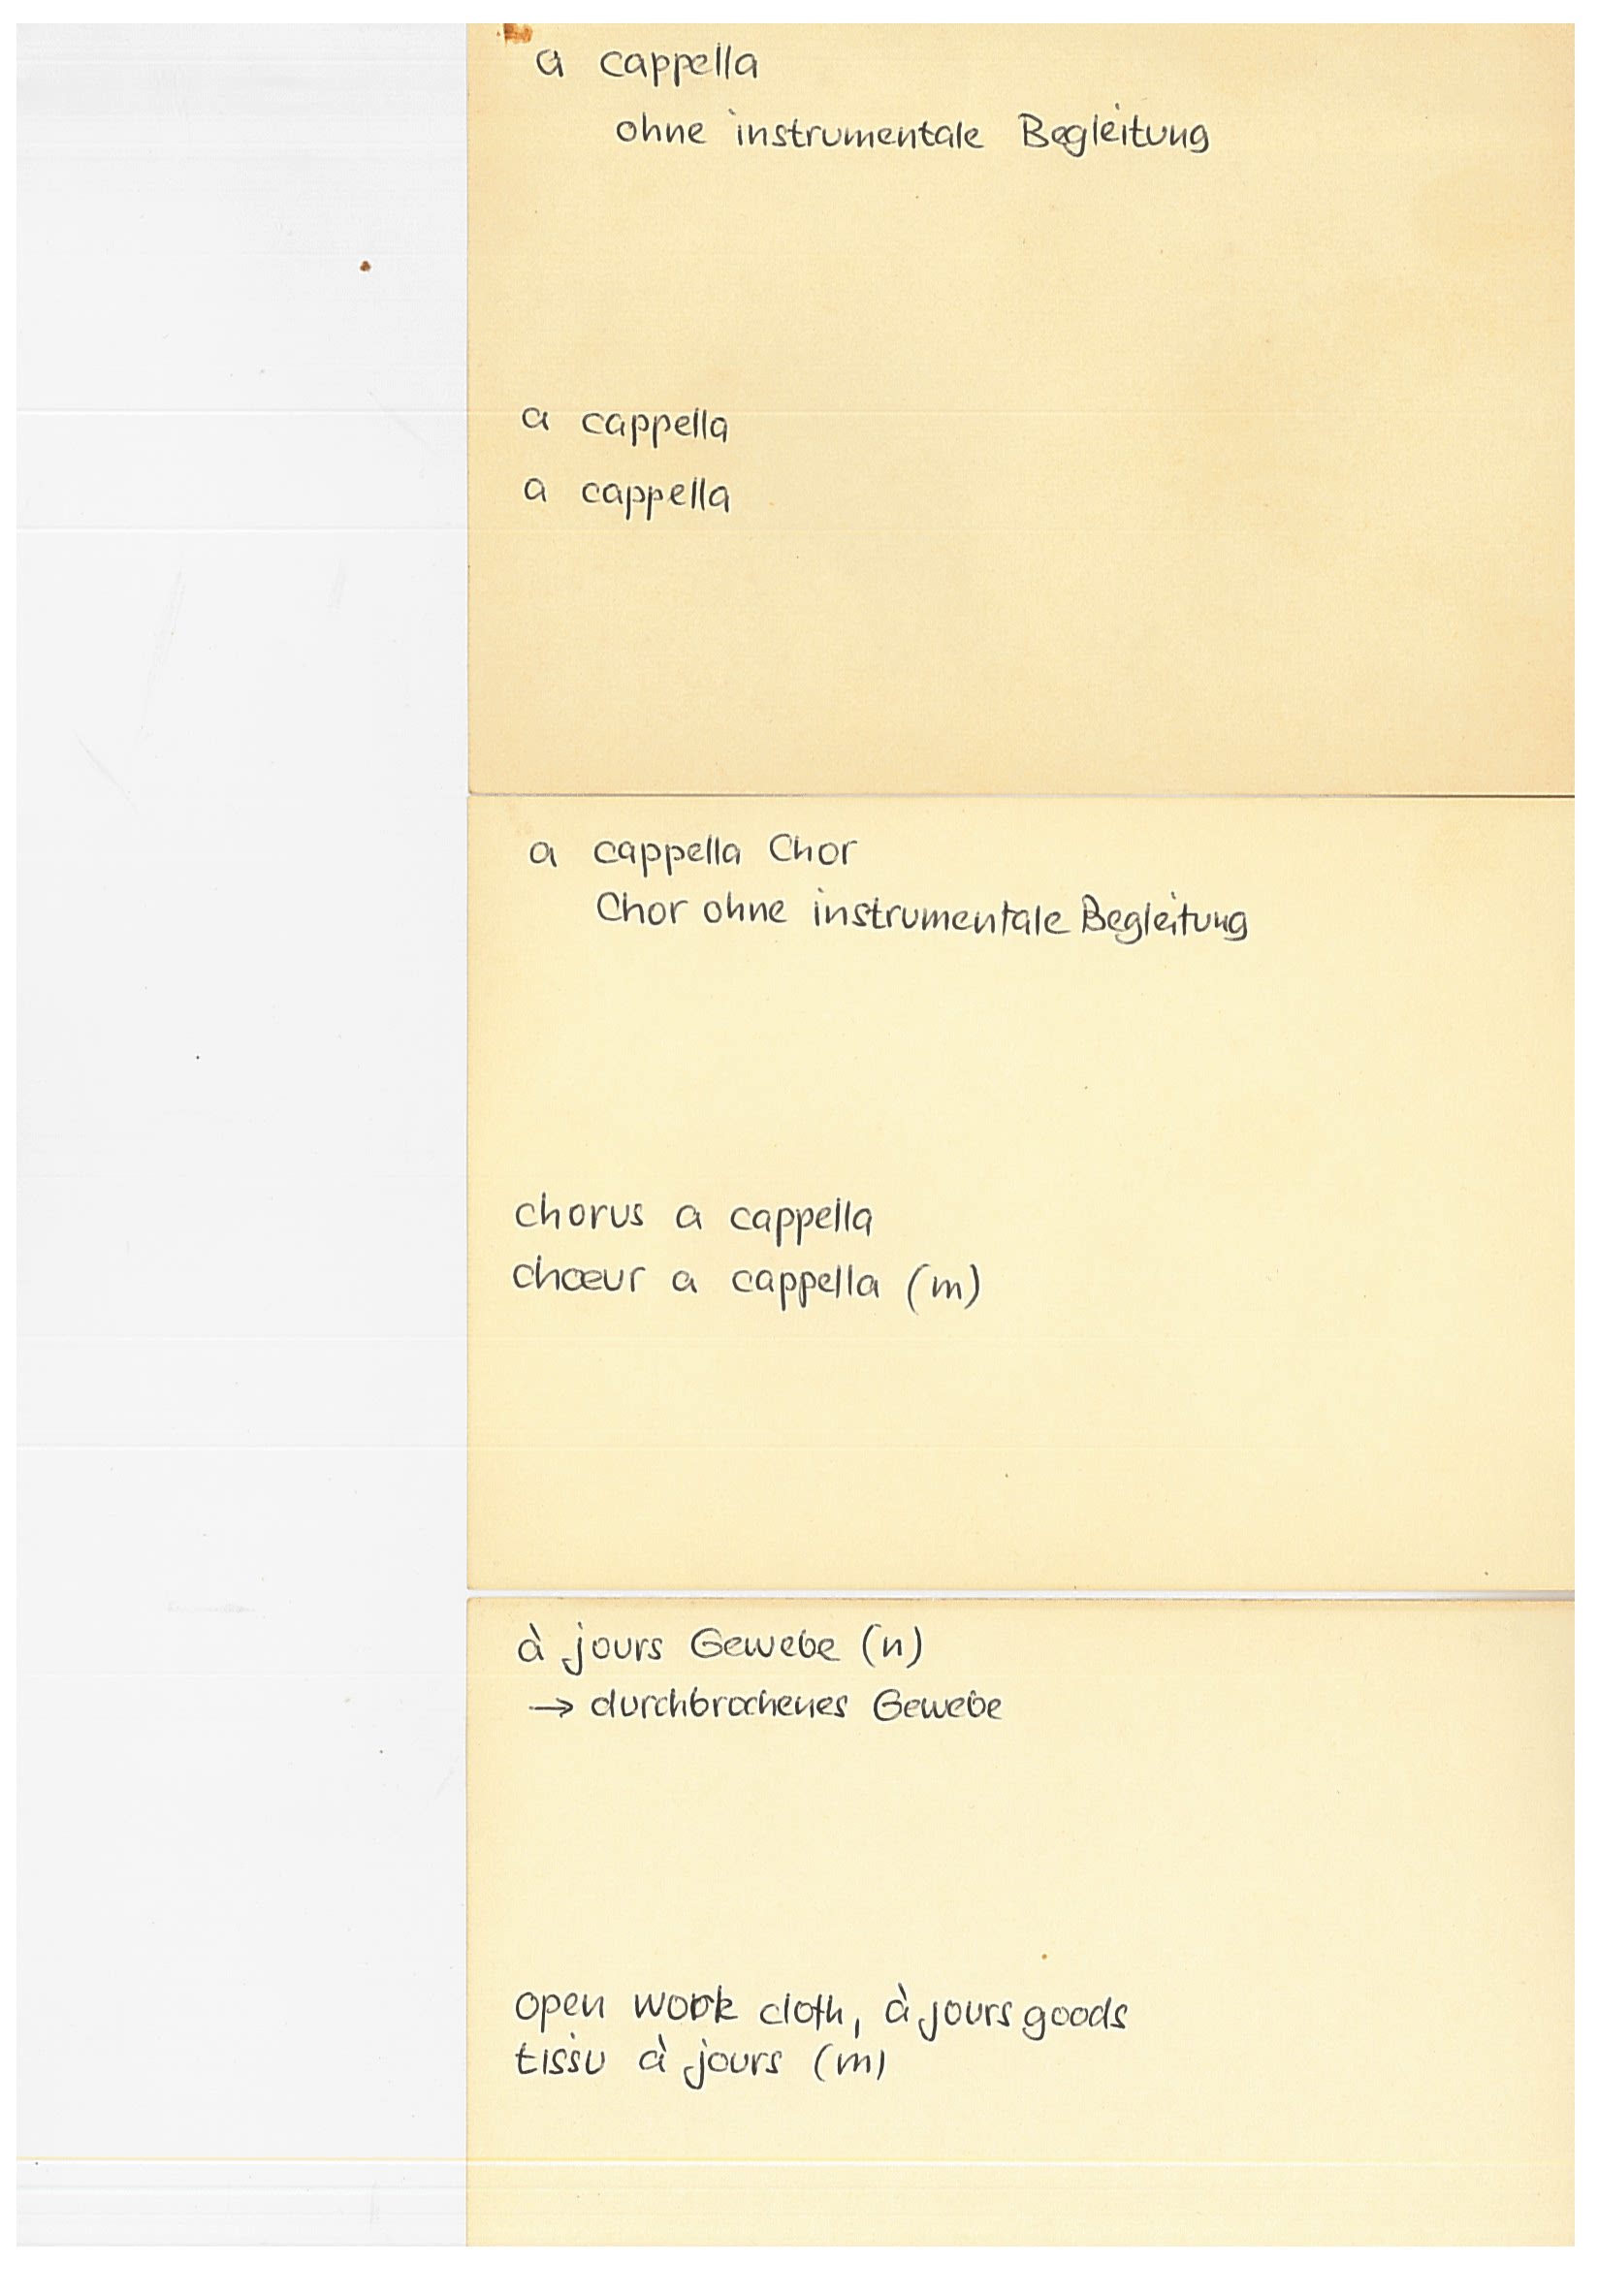 a cappella
ohne instrumentale Begleitung
a cappella
a cappella
a cappella Chor
Chor ohne instrumentale Begleitung
chorus a cappella
chœur a cappella (m)
à jours Gewebe (n)
→ durchbrochenes Gewebe
open work cloth, à jours goods
tissu à jours (m)